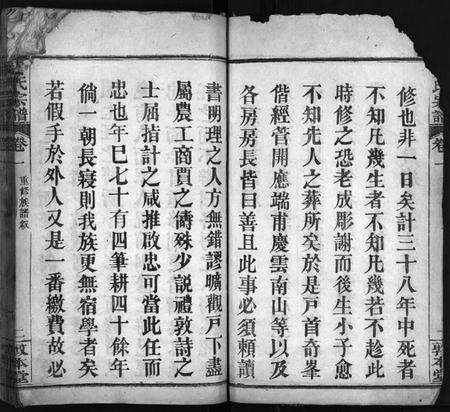 氏宗譜 卷一
敦本堂
修也非一日矣計三十八年中死者
不知凡幾生者不知凡幾若不趁此
時修之恐老成彫謝而後生小子愈
不知先人之葬所矣於是戶首奇峯
偕經管開應端甫慶雲南山等以及
各房房長皆曰善且此事必須賴讀
書明理之人方無錯謬曠觀戶下盡
屬農工商賈之儔殊少說禮敦詩之
士屈指計之咸推啟忠可當此任而
忠也年巳七十有四筆耕四十餘年
倘一朝長寢則我族更無宿學者矣
若假手於外人又是一番繳費故必
氏宗譜 卷一
重修族譜叙
二
敦本堂